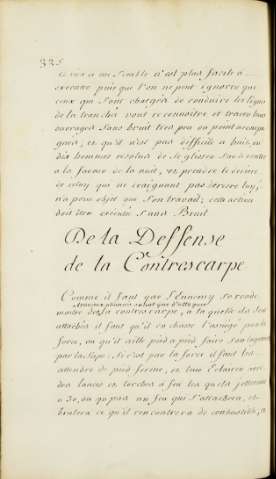 335
ce rien à me semble n'est plus facile à
executer puis que l'on ne peut ignorer que
ceux qui sont chargés de conduire les lignes
de la tranchée vont reconnoitre et tracer leurs
ouvrages sans bruit tres peu ou point accompa
gnés, et qu'il n'est pas difficile a huit ou
dix hommes résolus de se glisser sur le ventre
a la faveur de la nuit, et prendre le devant
de celuy qui ne craignant pas
n'a pour objet que son travail; cette action
doit être sans Bruit
De la Deffense
de la Contrescarpe
Comme il faut que l'Ennemy se rende
maitre de la contrescarpe, a la quelle il s'est
attaché il faut qu'il en chasse l'assiegé par la
force, ou qu'il aille pied a pied faire son logement
par la sape; si c'est par la force il faut les
attendre de pied ferme, et bien éclairer avec
des lances et torches a feu les quels jettent
a 30, ou 40 pas un feu qui s'attachera, et
brulera ce qu'il rencontrera de combustible, et